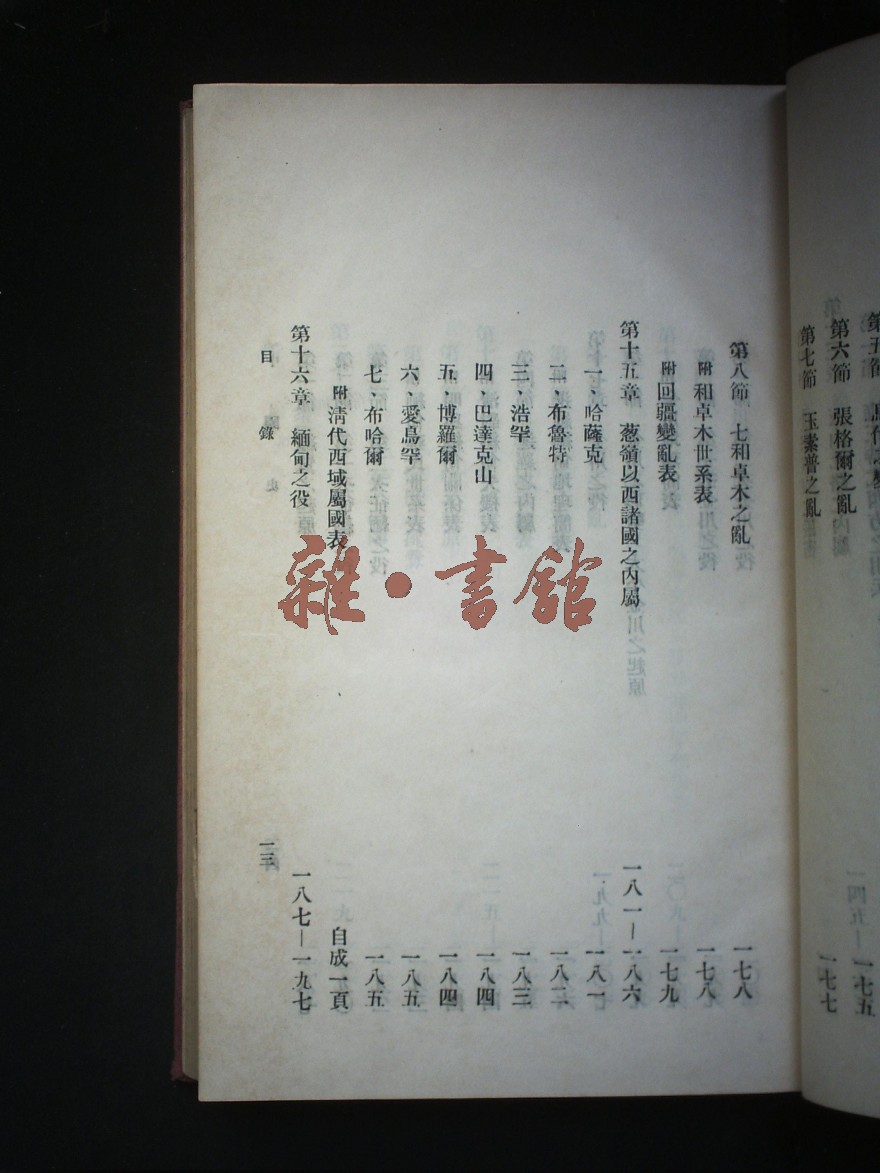 第六節 張格爾之亂
第七節 玉素普之亂 一七七
第八節 七和卓木之亂 一七八
附和卓木世系表 一七八
附回疆變亂表 一七九
第十五章 葱嶺以西諸國之內屬 一八一—一八六
一、哈薩克 一八一
二、布魯特 一八二
三、浩罕 一八三
四、巴達克山 一八四
五、博羅爾 一八四
六、愛烏罕 一八五
七、布哈爾 一八五
附清代西域屬國表 自成一頁
第十六章 緬甸之役 一八七—一九七
目錄 一三
雜·書館